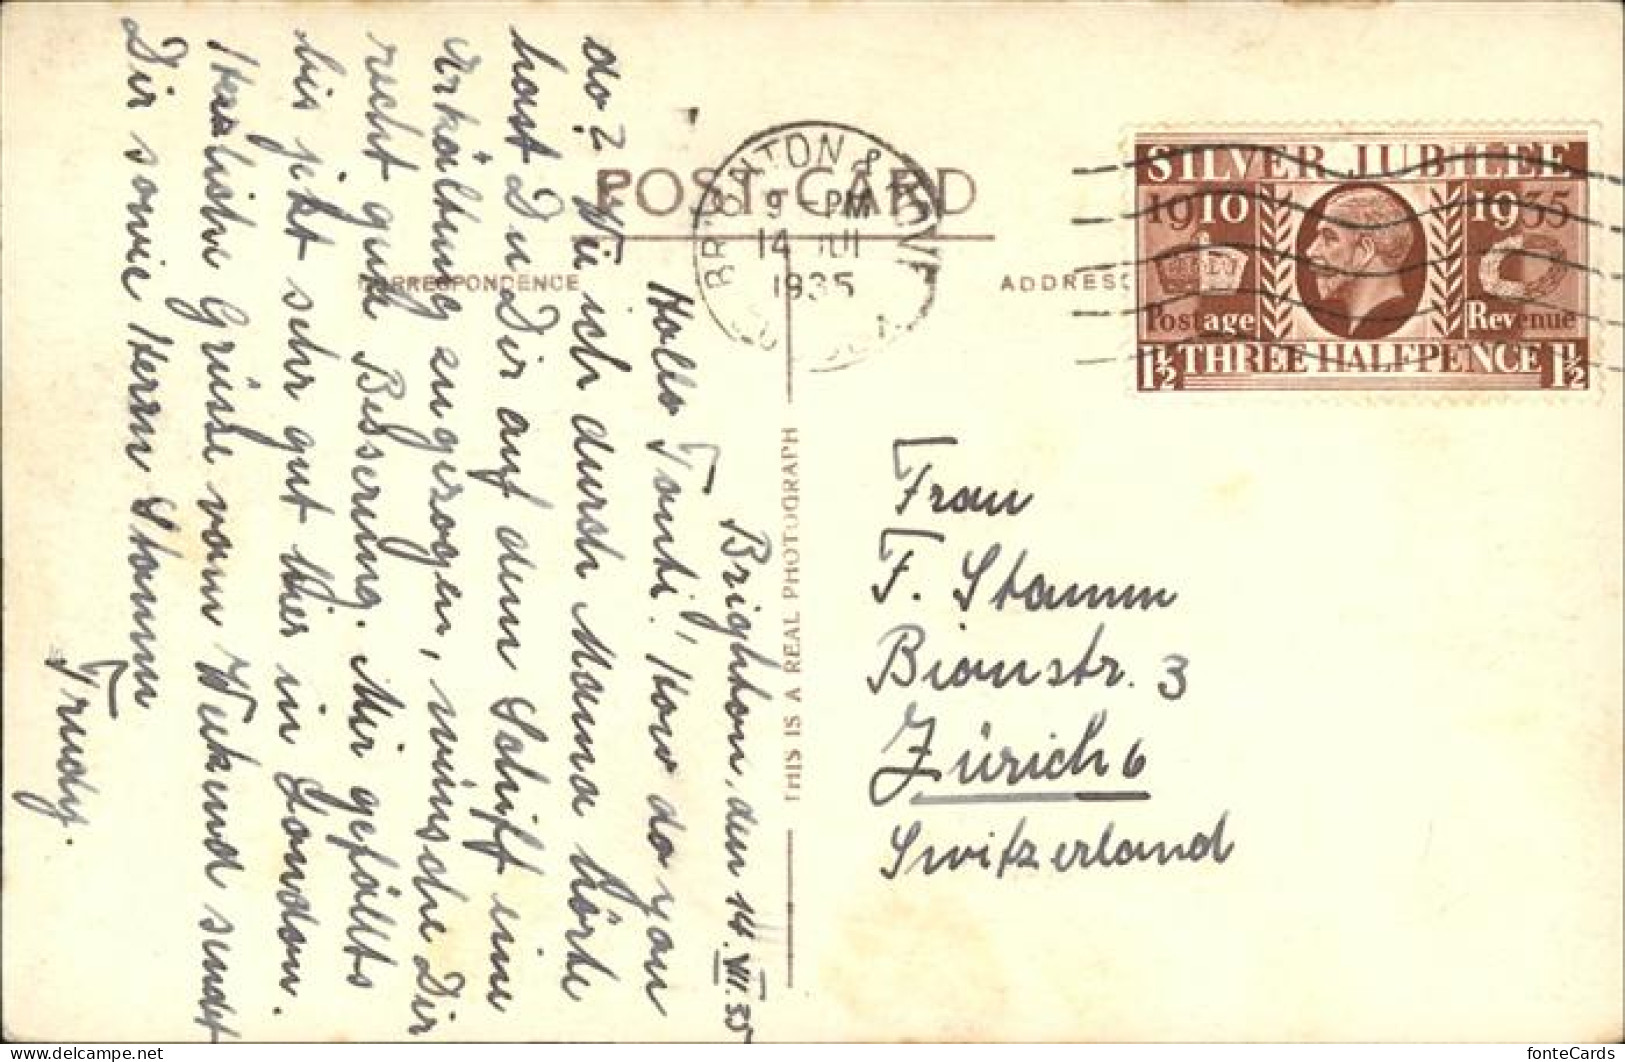 POST CARD
CORRESPONDENCE
ADDRESS
THIS IS A REAL PHOTOGRAPH
BRIGHTON & HOVE
9 - PM
14 JUL
1935
SILVER JUBILEE
1910 1935
Postage Revenue
1½ THREE HALFPENCE 1½
Brighton, den 14. VII. 35
Hallo Tanti! How do you
do? Wie ich durch Mama hörte
hast Du Dir auf dem Schiff eine
Erkältung zugezogen, wünsche Dir
recht gute Besserung. Mir gefällts
bis jetzt sehr gut hier in London.
Herzliche Grüsse vom Weekend sendet
Dir sowie Herrn Stamm
Trudy.
Frau
F. Stamm
Bionstr. 3
Zürich 6
Switzerland
fonteCards
https://www.delcampe.net